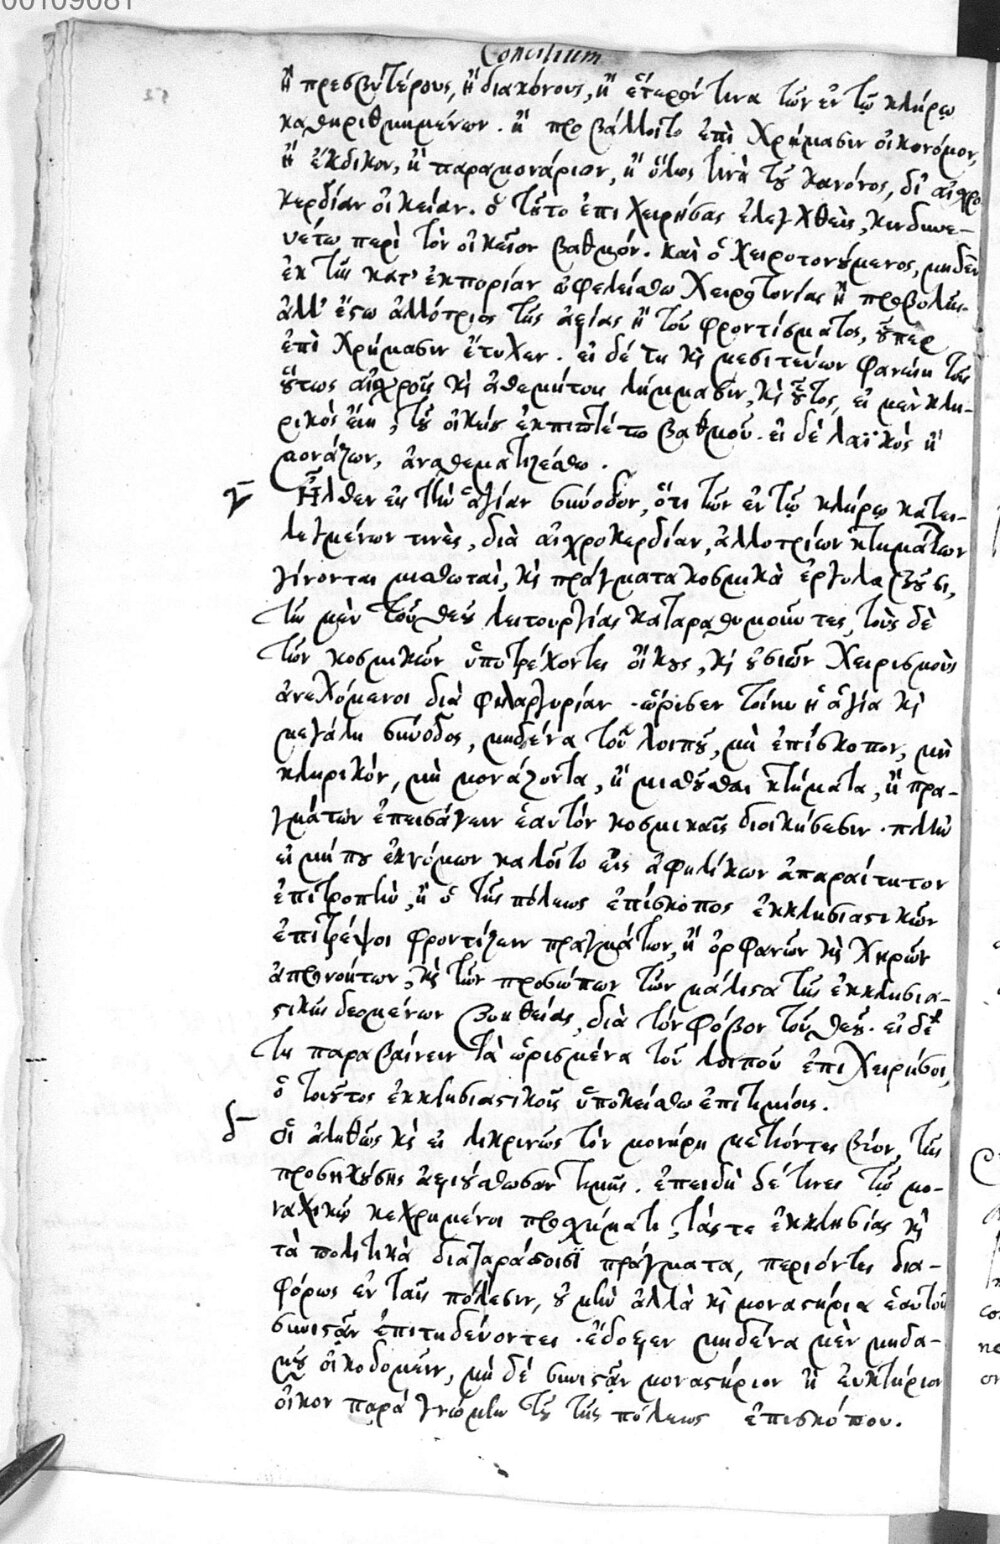 00109081
Concilium
ἢ πρεσβυτέρους, ἢ διακόνους, ἢ ἕτερόν τινα τῶν ἐν τῷ κλήρῳ
καθηριθμημένων. ἢ προβάλλοιτο ἐπὶ χρήμασιν οἰκονόμον,
ἢ ἔκδικον, ἢ παραμονάριον, ἢ ὅλως τινὰ τοῦ κανόνος, δι' αἰσχρο
κερδίαν οἰκείαν. ὁ τοῦτο ἐπιχειρήσας ἐλεγχθεὶς, κινδυνε-
υέτω περὶ τὸν οἰκεῖον βαθμόν. καὶ ὁ χειροτονούμενος, μηδὲν
ἐκ τῆς κατ' ἐμπορίαν ὠφελείσθω χειροτονίας ἢ προβολῆς.
ἀλλ' ἔστω ἀλλότριος τῆς ἀξίας ἢ τοῦ φροντίσματος, οὗπερ
ἐπὶ χρήμασιν ἔτυχεν. εἰ δέ τις καὶ μεσιτεύων φανείη τοῖς
οὕτως αἰσχροῖς καὶ ἀθεμίτοις λήμμασιν, καὶ οὗτος, εἰ μὲν κλη-
ρικὸς εἴη, τοῦ οἰκείου ἐκπιπτέτω βαθμοῦ. εἰ δὲ λαϊκὸς ἢ
μονάζων, ἀναθεματιζέσθω.
γ Ἦλθεν εἰς τὴν ἁγίαν σύνοδον, ὅτι τῶν ἐν τῷ κλήρῳ κατει-
λεγμένων τινὲς, διὰ αἰσχροκερδίαν, ἀλλοτρίων κτημάτων
γίνονται μισθωταὶ, καὶ πράγματα κοσμικὰ ἐργολαβοῦσι,
τῆς μὲν τοῦ θεοῦ λειτουργίας καταραθυμοῦντες, τοὺς δὲ
τῶν κοσμικῶν ὑποτρέχοντες οἴκους, καὶ οὐσιῶν χειρισμοὺς
ἀνεχόμενοι διὰ φιλαργυρίαν. ὥρισεν τοίνυν ἡ ἁγία καὶ
μεγάλη σύνοδος, μηδένα τοῦ λοιποῦ, μὴ ἐπίσκοπον, μὴ
κληρικόν, μὴ μονάζοντα, ἢ μισθοῦσθαι κτήματα, ἢ πρα-
γμάτων ἐπεισάγειν ἑαυτὸν κοσμικαῖς διοικήσεσιν. πλὴν
εἰ μή που ἐκ νόμων καλοῖτο εἰς ἀφηλίκων ἀπαραίτητον
ἐπιτροπὴν, ἢ ὁ τῆς πόλεως ἐπίσκοπος ἐκκλησιαστικῶν
ἐπιτρέψοι φροντίζειν πραγμάτων, ἢ ὀρφανῶν καὶ χηρῶν
ἀπρονοήτων, καὶ τῶν προσώπων τῶν μάλιστα τῆς ἐκκλησια-
στικῆς δεομένων βοηθείας, διὰ τὸν φόβον τοῦ θεοῦ. εἰ δέ
τις παραβαίνειν τὰ ὡρισμένα τοῦ λοιποῦ ἐπιχειρήσοι,
ὁ τοιοῦτος ἐκκλησιαστικοῖς ὑποκείσθω ἐπιτιμίοις.
δ Οἱ ἀληθῶς καὶ εἰλικρινῶς τὸν μονήρη μετιόντες βίον, τῆς
προσηκούσης ἀξιούσθωσαν τιμῆς. ἐπειδὴ δέ τινες τῷ μο-
ναχικῷ κεχρημένοι προσχήματι, τάς τε ἐκκλησίας καὶ
τὰ πολιτικὰ διαταράσσουσι πράγματα, περιόντες δια-
φόρως ἐν ταῖς πόλεσιν, οὐ μὴν ἀλλὰ καὶ μοναστήρια ἑαυτοῖς
συνιστᾶν ἐπιτηδεύοντες. ἔδοξεν μηδένα μὲν μηδα-
μοῦ οἰκοδομεῖν, μὴ δὲ συνιστᾶν μοναστήριον ἢ εὐκτήριον
οἶκον παρὰ γνώμην τοῦ τῆς πόλεως ἐπισκόπου.